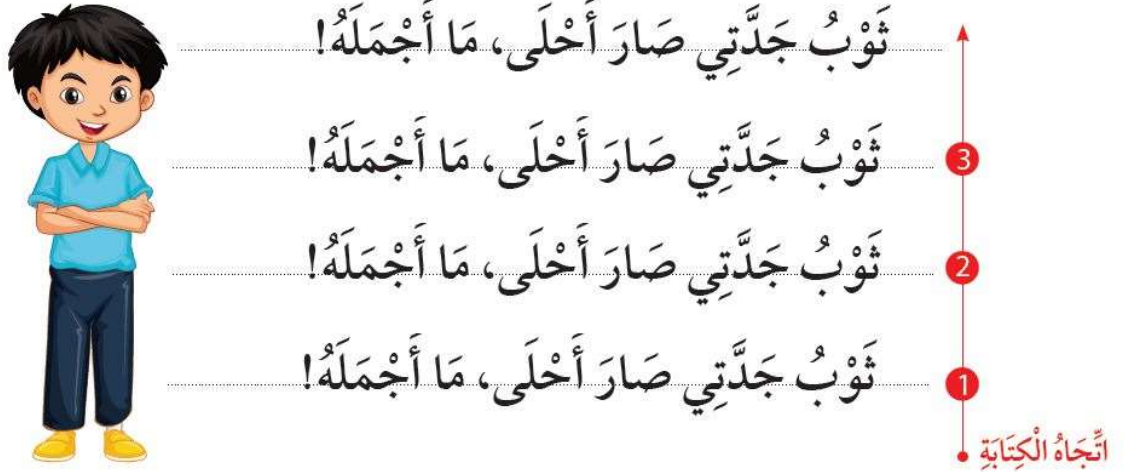 ثَوْبُ جَدَّتِي صَارَ أَحْلَى، مَا أَجْمَلَهُ!
ثَوْبُ جَدَّتِي صَارَ أَحْلَى، مَا أَجْمَلَهُ! 3
ثَوْبُ جَدَّتِي صَارَ أَحْلَى، مَا أَجْمَلَهُ! 2
ثَوْبُ جَدَّتِي صَارَ أَحْلَى، مَا أَجْمَلَهُ! 1
اتِّجَاهُ الْكِتَابَةِ